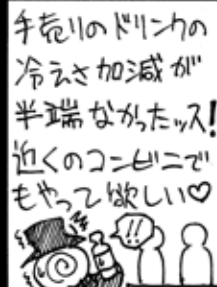 手売りのドリンクの
冷えさ加減が
半端なかったッス!
近くのコンビニで
もやって欲しい♡
!!